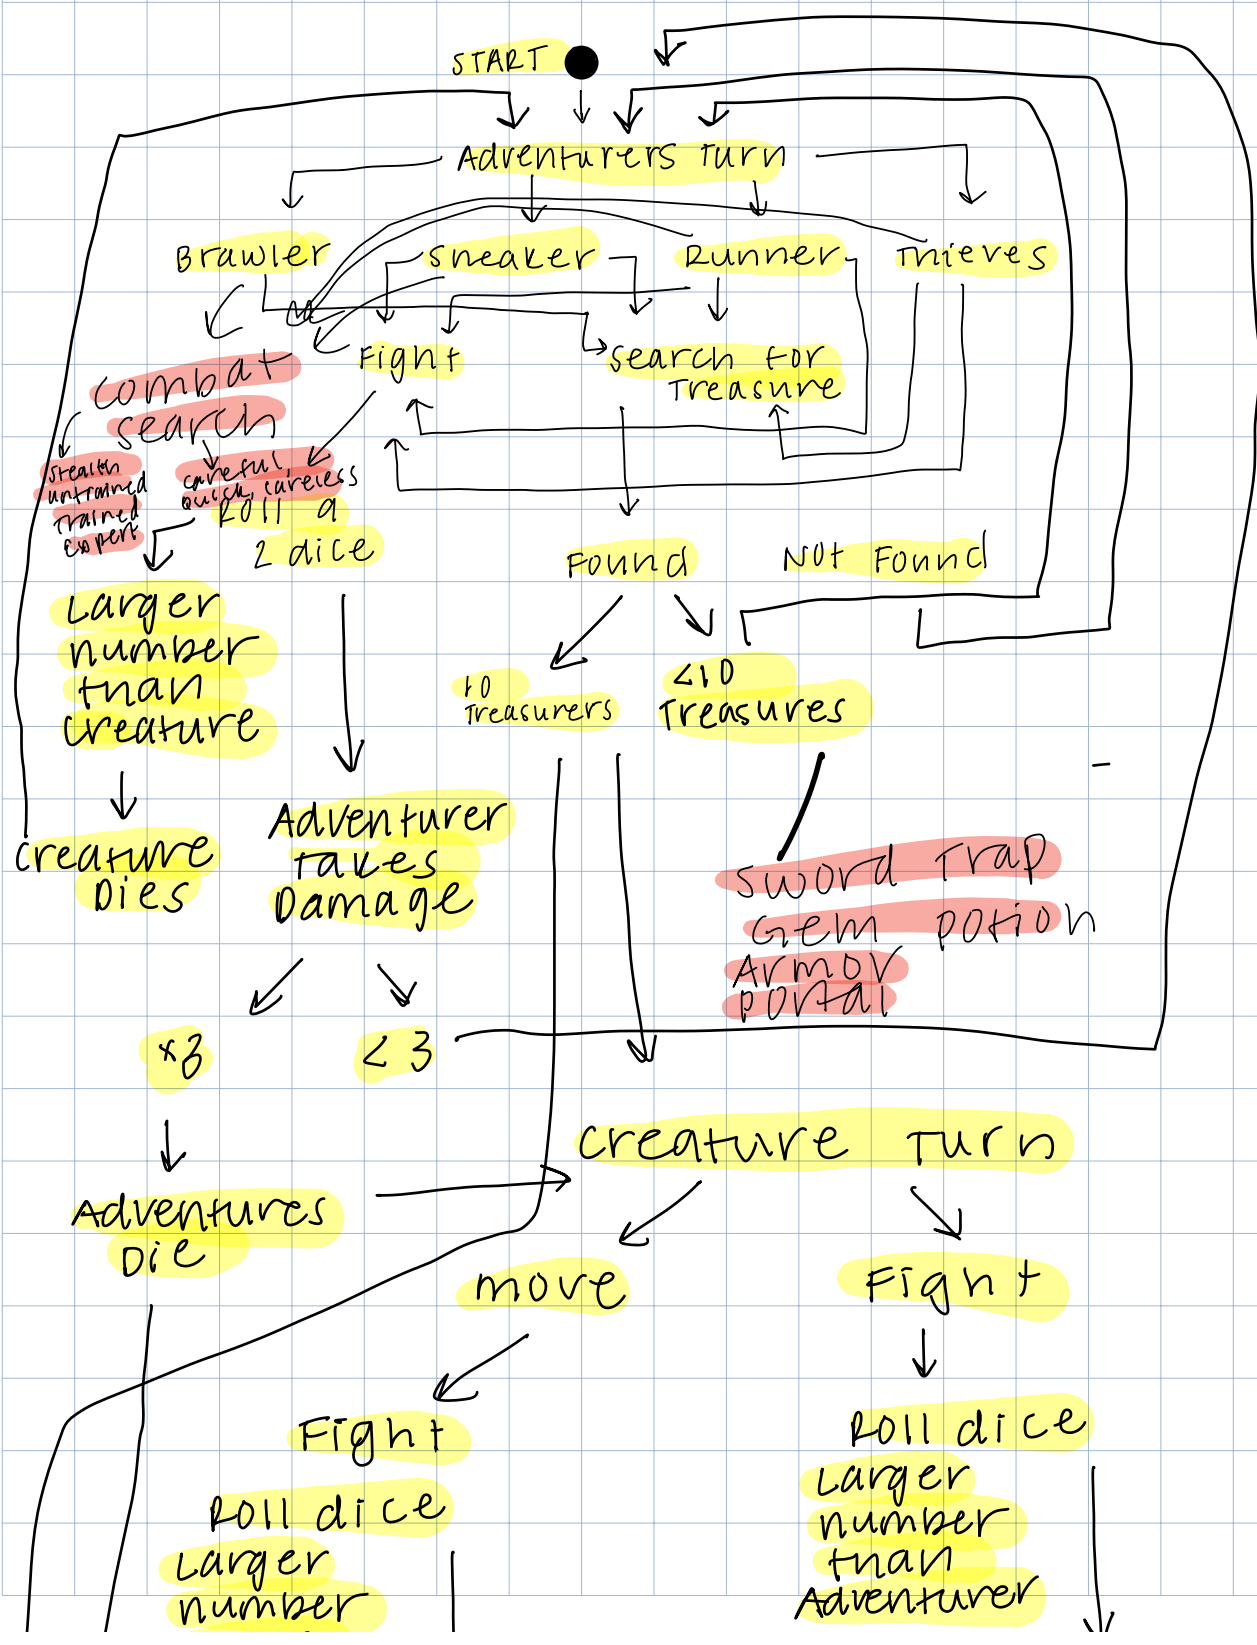 START
Adventurers Turn
Brawler
Sneaker
Runner
Thieves
Combat
search
Fight
Search for
Treasure
Stealth
untrained
Trained
Expert
careful,
quick, careless
Roll a
2 dice
Found
Not Found
Larger
number
than
creature
10
Treasurers
<10
Treasures
Creature
Dies
Adventurer
takes
Damage
Sword Trap
Gem potion
Armor
portal
x3
< 3
Creature Turn
Adventures
Die
move
Fight
Fight
Roll dice
Larger
number
Roll dice
Larger
number
than
Adventurer